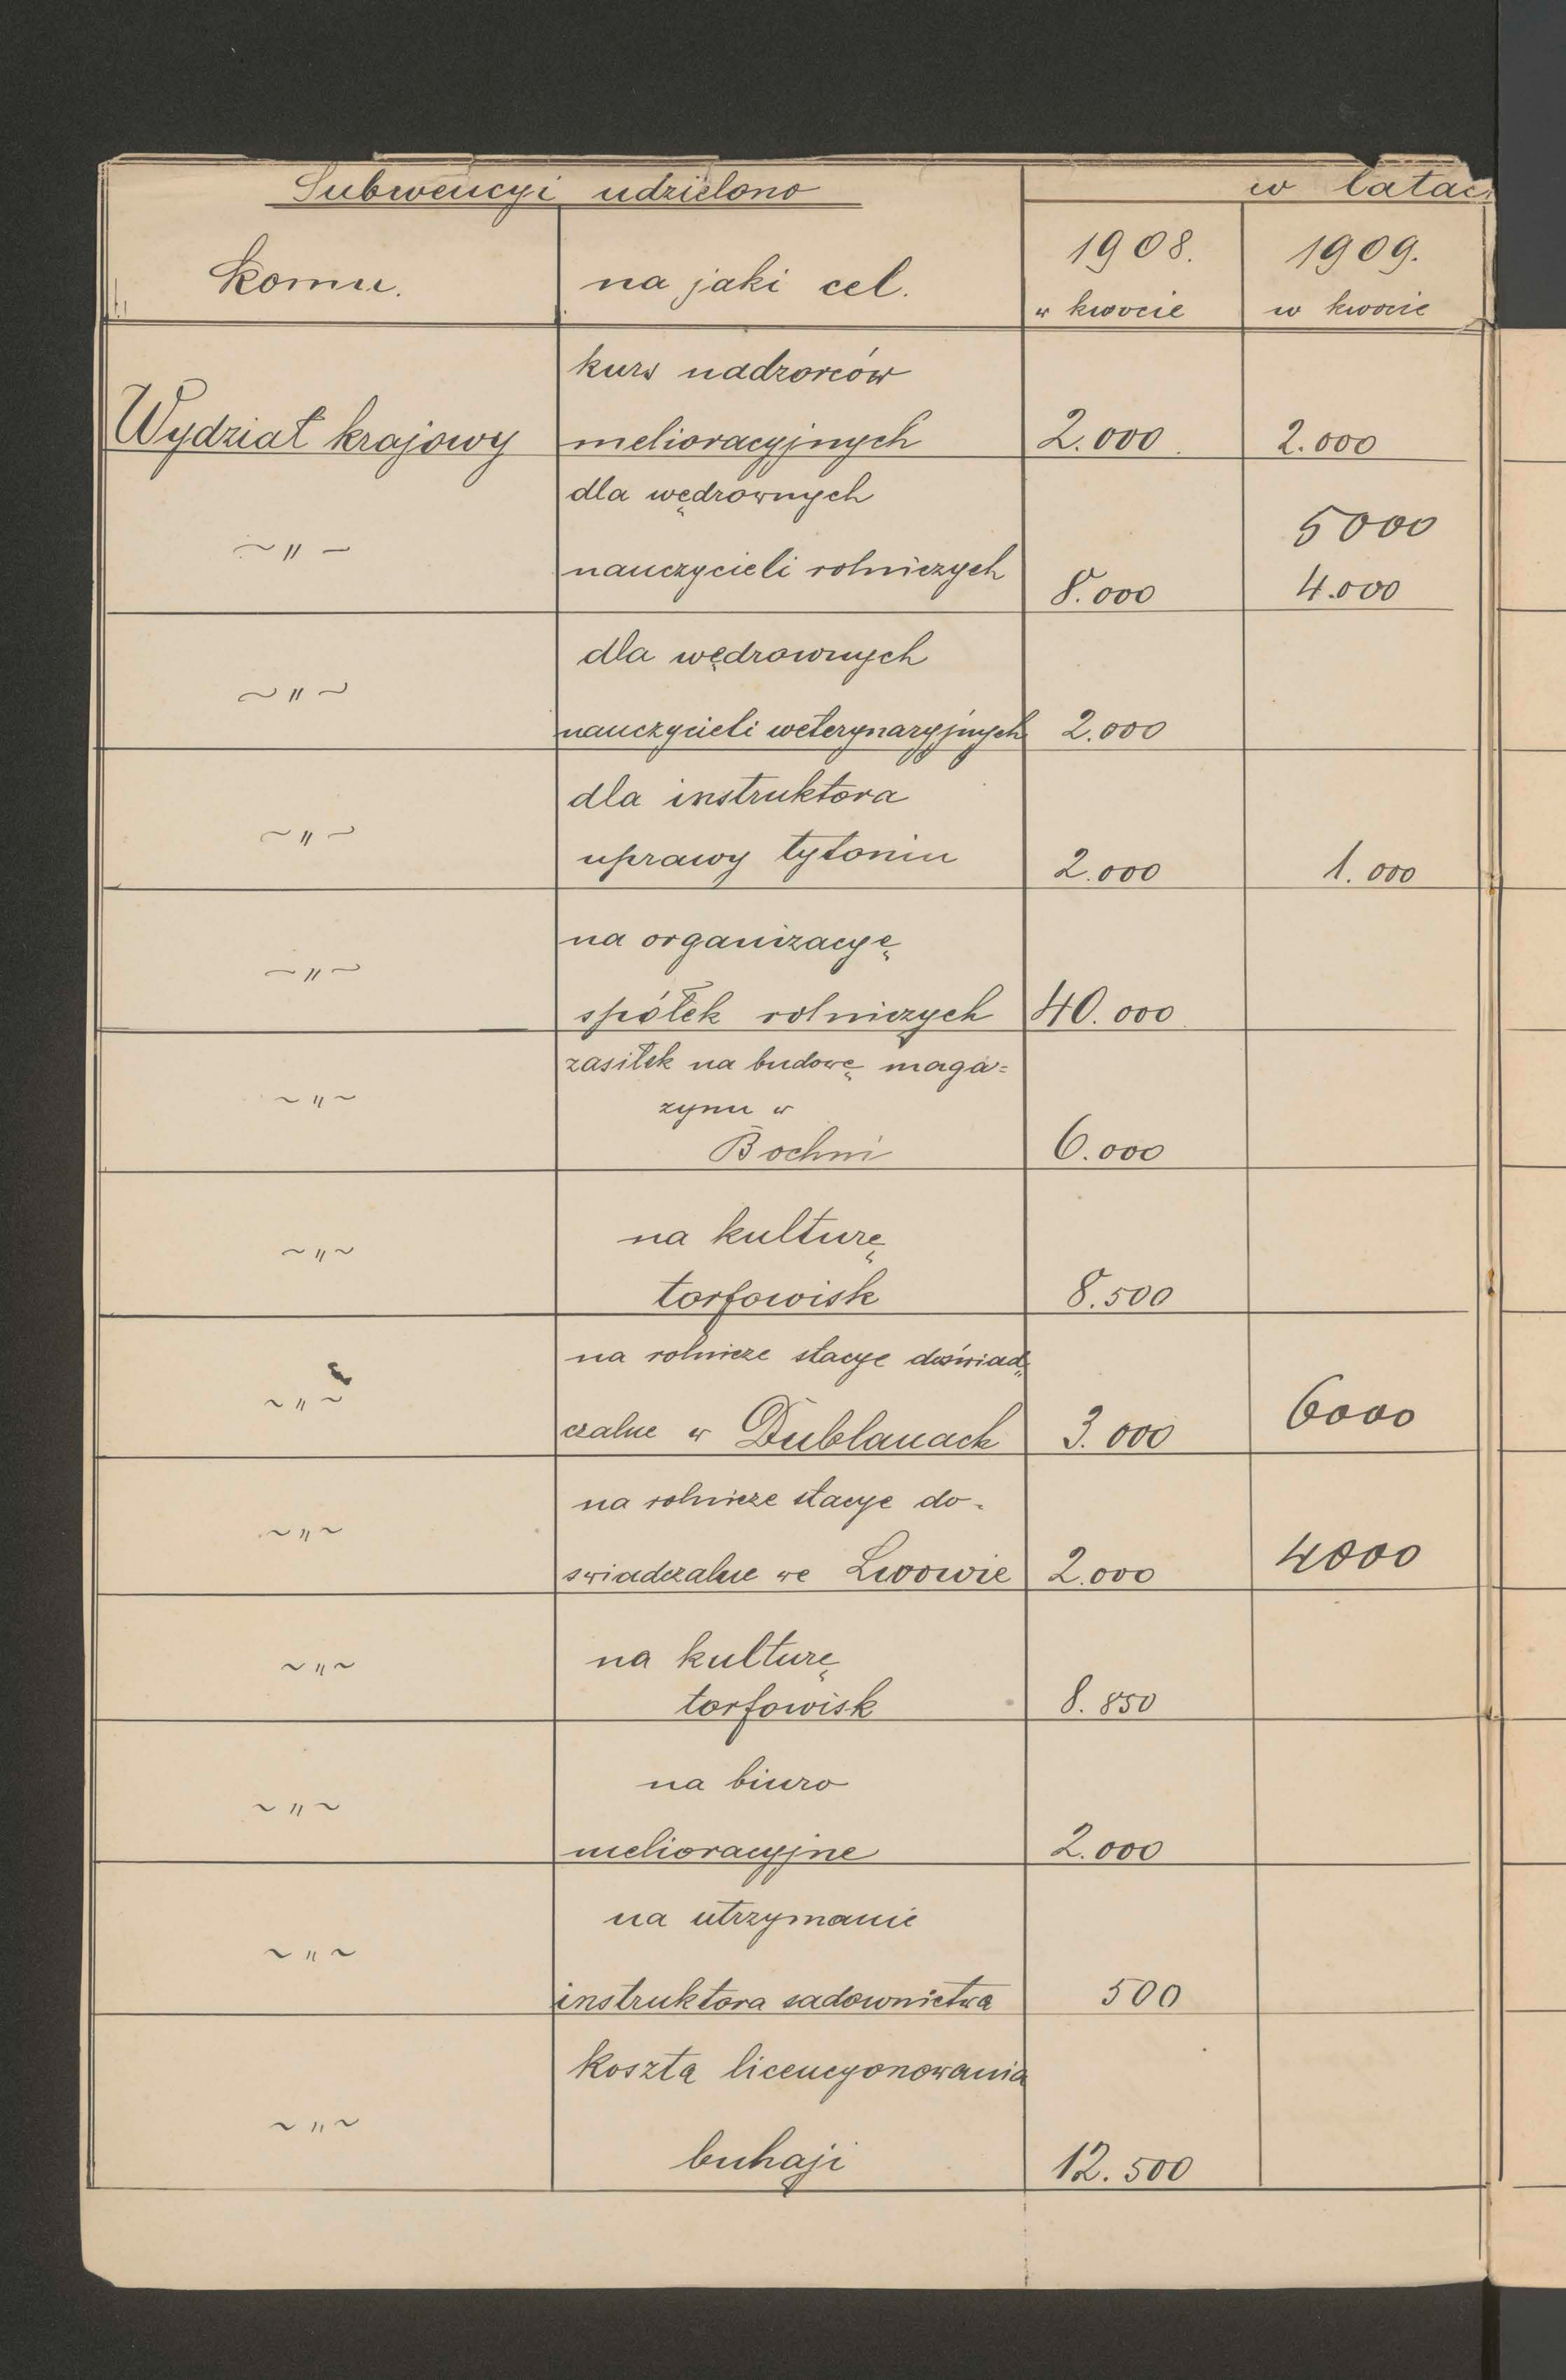 Subwencyi udzielono w latach
komu. na jaki cel. 1908. 1909.
w kwocie w kwocie
kurs nadzorców
Wydział krajowy melioracyjnych 2.000 2.000
dla wędrownych
5000
~ " ~
nauczycieli rolniczych 8.000 4.000
dla wędrownych
~ " ~
nauczycieli weterynaryjnych 2.000
dla instruktora
~ " ~
uprawy tytoniu 2.000 1.000
na organizacyę
~ " ~
spółek rolniczych 40.000
zasiłek na budowę maga=
~ " ~
zynu w
Bochni 6.000
na kulturę
~ " ~
torfowisk 8.500
na rolnicze stacye doświad„
~ " ~
czalne w Dublanach 3.000 6000
na rolnicze stacye do-
~ " ~
swiadczalne we Lwowie 2.000 4000
na kulturę
~ " ~
torfowisk 8.850
na biuro
~ " ~
melioracyjne 2.000
na utrzymanie
~ " ~
instruktora sadownictwa 500
koszta licencyonowania
~ " ~
buhaji 12.500